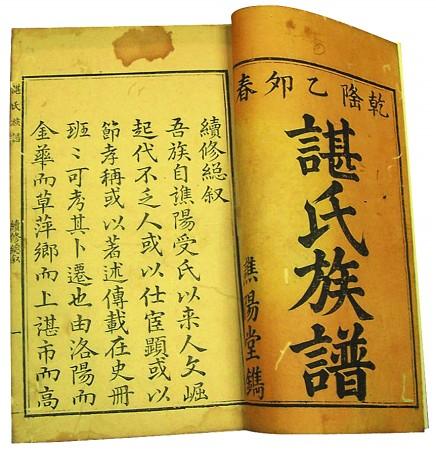 乾隆乙卯春
諶氏族譜
譙陽堂鐫
續修總叙
吾族自譙陽受氏以來人文崛
起代不乏人或以仕宦顯或以
節孝稱或以著述傳載在史冊
班〻可考其卜遷也由洛陽而
金華而草萍鄉而上諶市而高
諶氏族譜
續修總叙
一